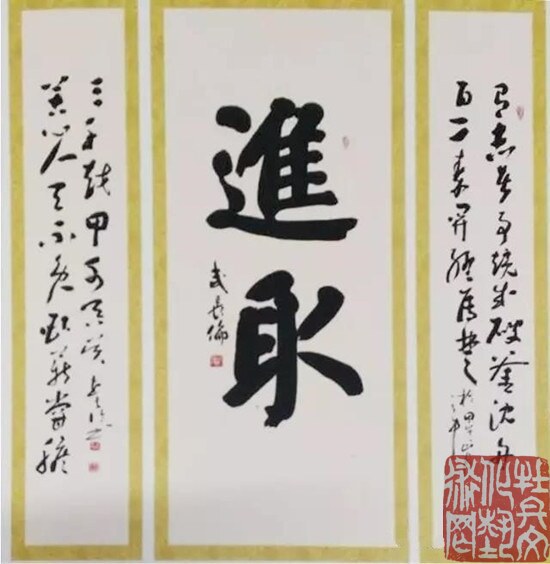 有志者事竟成破釜沈舟
百二秦關終屬楚
進取
苦心人天不負臥薪嘗膽
三千越甲可吞吴